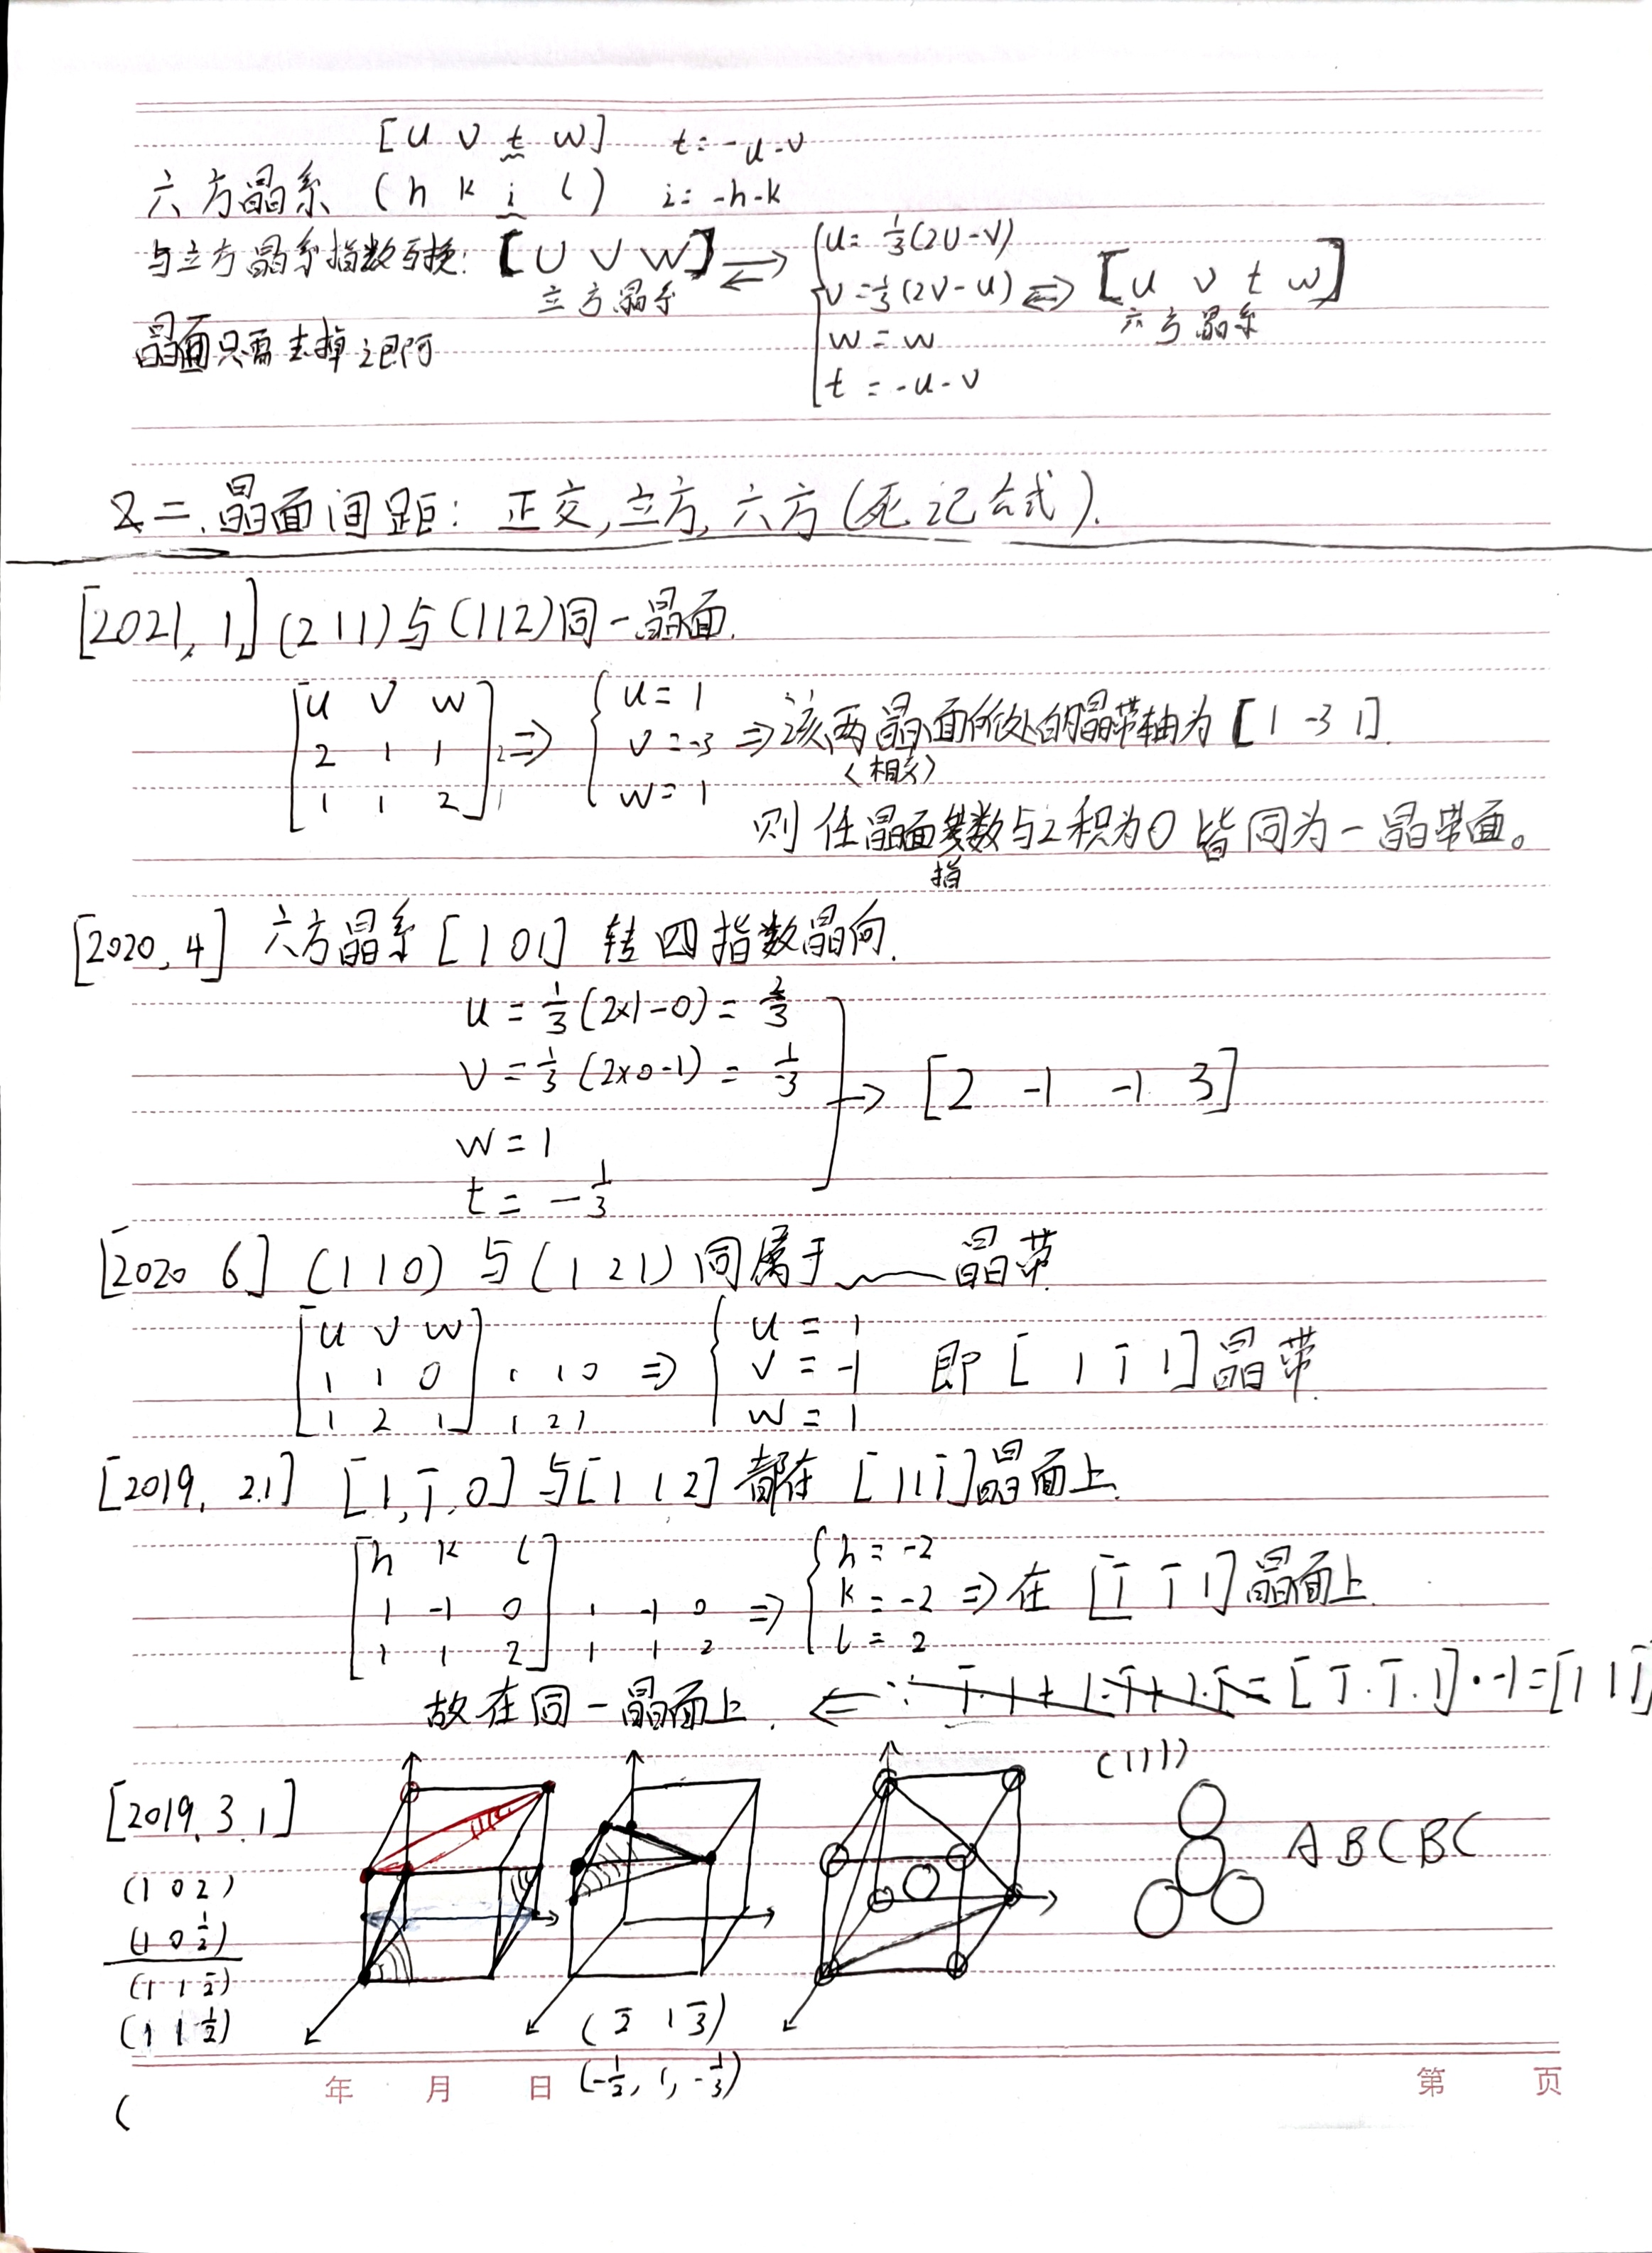 [u v t w] t=-u-v
六方晶系 (h k i l) i=-h-k
与立方晶系指数互换: [U V W] ⇌ { u=1/3(2U-V)
立方晶系 v=1/3(2V-U) ⇔ [u v t w]
晶面只需去掉i即可 w=w 六方晶系
t=-u-v
二.晶面间距: 正交,立方,六方(死记公式).
[2021,1,] (211)与(112)同一晶面.
[u v w
2 1 1
1 1 2] 2 1 ⇒ { u=1
v=-3
w=1 ⇒该两晶面所处的晶带轴为[1 -3 1].
<相交>
则 任晶面指数与之积为0 皆同为一晶带面。
[2020,4] 六方晶系[101] 转四指数晶向.
u=1/3(2x1-0)=2/3
v=1/3(2x0-1)=1/-3
→ [2 -1 -1 3]
w=1
t=-1/3
[2020 6] (110) 与(121)同属于 晶带
[u v w
1 1 0
1 2 1] 1 1 0
1 2 1 ⇒ { u=1
v=-1
w=1 即[1 1̄ 1]晶带.
[2019, 2.1] [1,1̄,0]与[112]都在 [111̄]晶面上.
[h k l
1 -1 0
1 1 2] 1 -1 0
1 1 2 ⇒ { h=-2
k=-2
l=2 ⇒在[1̄ 1̄ 1]晶面上.
故在同一晶面上. ⇐ ∵ 1̄·1+1·1̄+1·1̄=[1̄.1̄.1]·-1=[111̄]
[2019.3.1] (111)
ABCBC
(102)
(1 0 1/2)
(1 1 2̄)
(1 1 1/2)
(2̄ 1 3̄)
(-1/2, 1, -1/3)
年 月 日 第 页
(